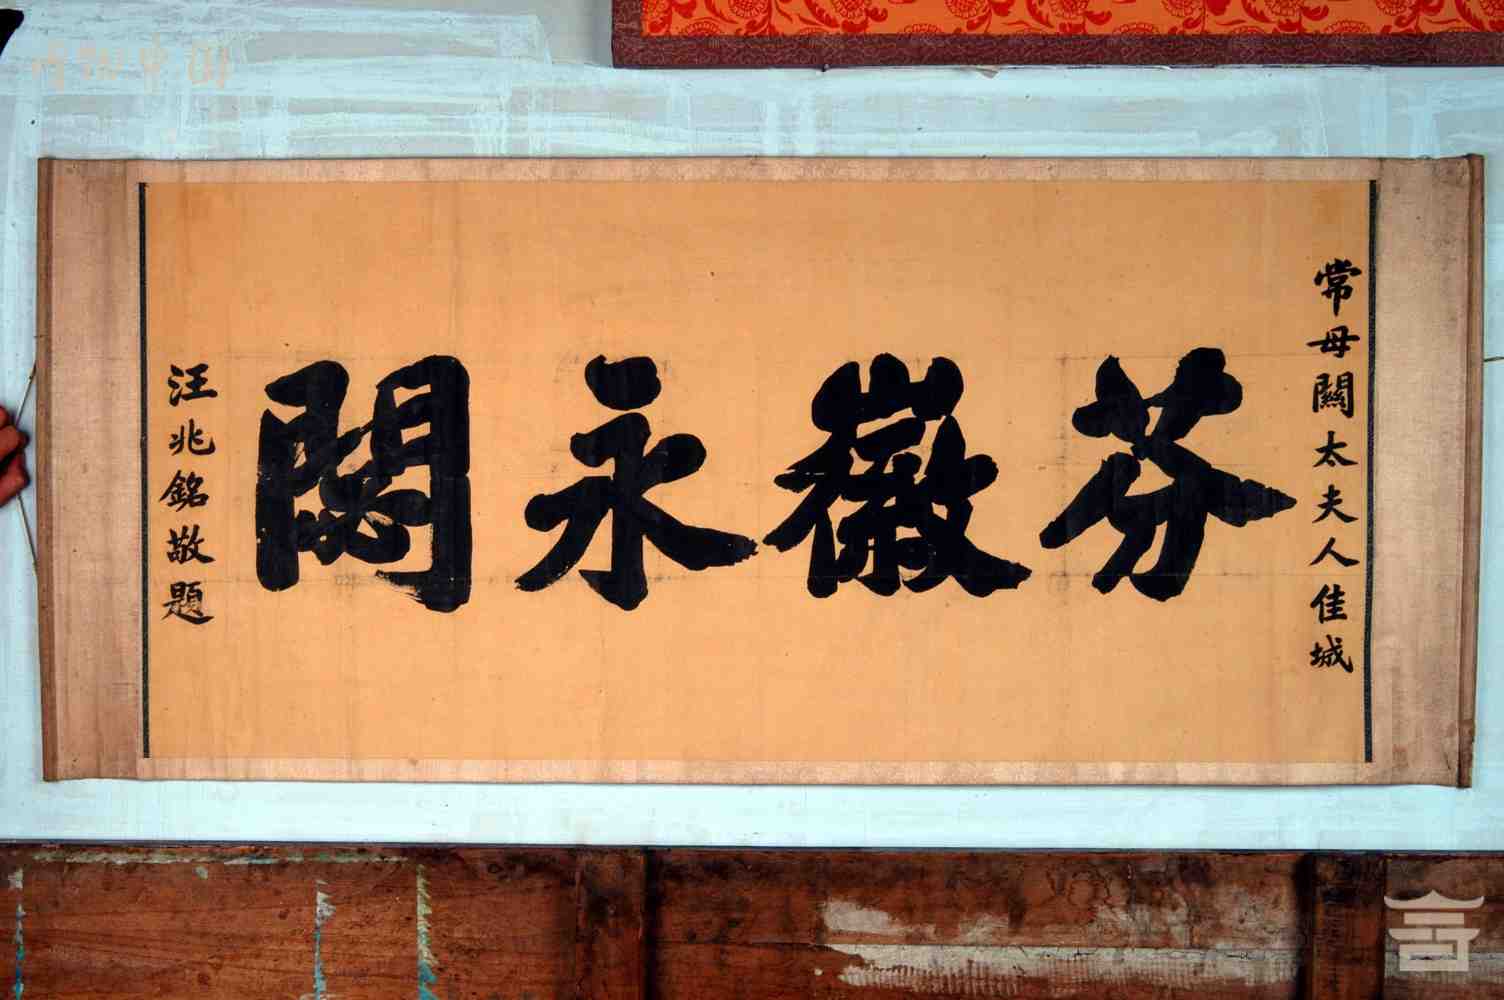 常母闕太夫人佳城
芬徽永閟
汪兆銘敬題